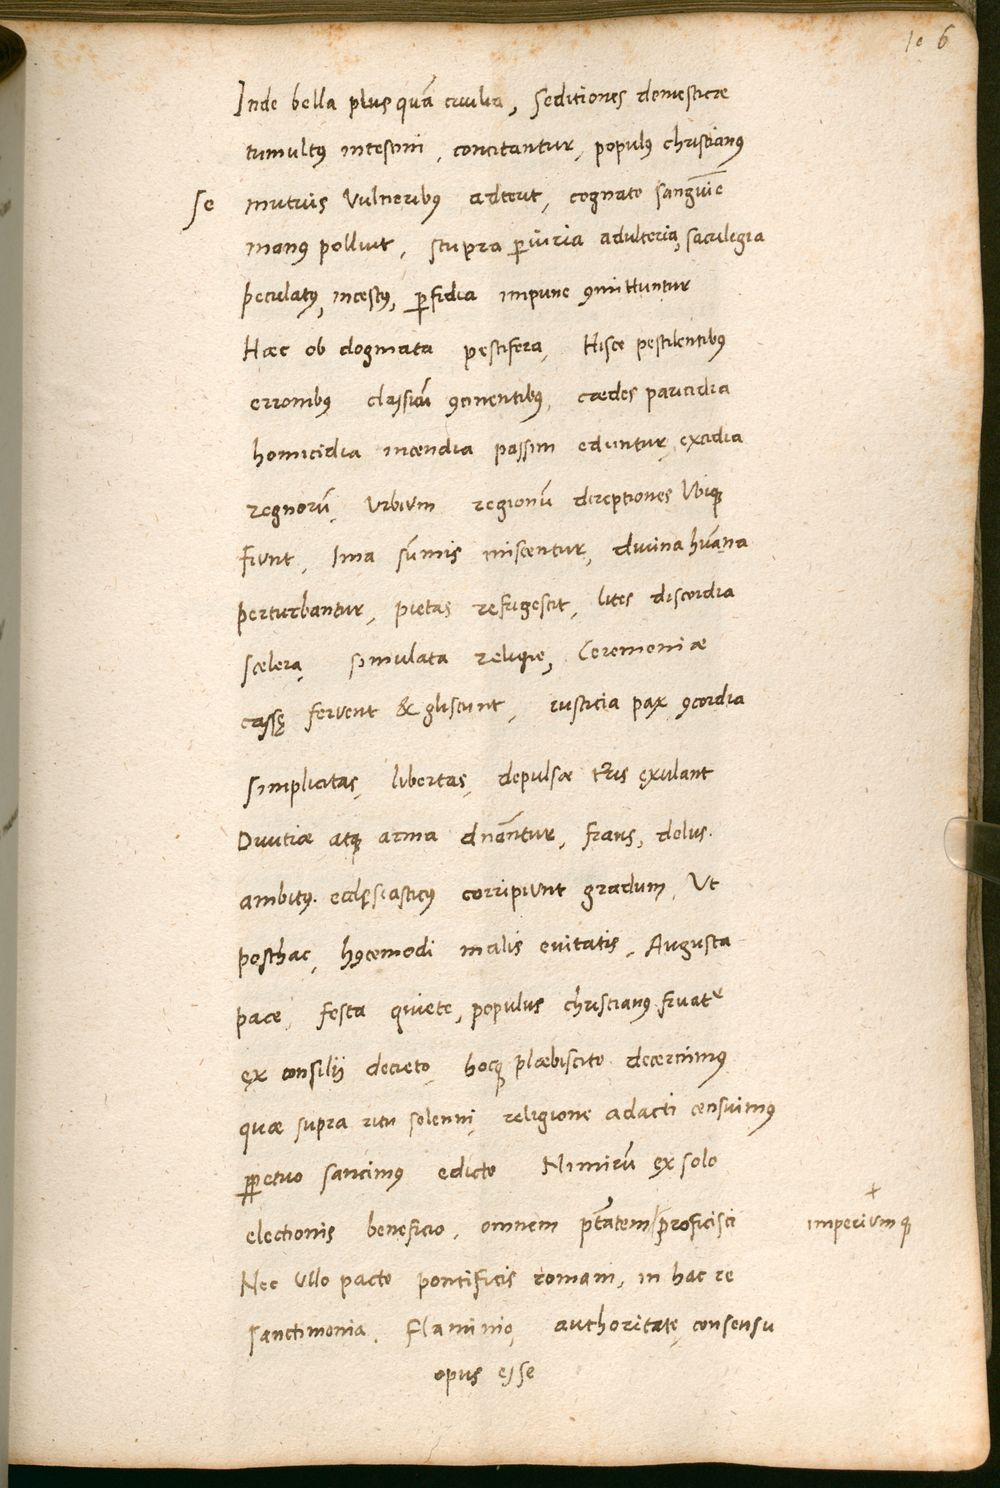 106
Inde bella plus quã ciuilia, seditiones domesticæ
tumultꝰ intestini, concitantur, populꝰ christianꝰ
se mutuis vulneribꝰ adterit, cognato sanguīe
manꝰ polluit, stupra ꝑiuria adulteria, sacrilegia
peculatꝰ, incestꝰ, ꝑfidia impune ꝯmittuntur
Hæc ob dogmata pestifera, Hisce pestilentibꝰ
erroribꝰ classicũ ꝯcinentibꝰ, cædes paricidia
homicidia incendia passim eduntur, excidia
regnorũ, vrbium regionũ direptiones vbiqꝫ
fiunt, Ima sũmis miscentur, diuina hũana
perturbantur, pietas refrigescit, lites discordia
scelera, simulata religio, Ceremoniæ
cassę feruent & gliscunt, iusticia pax ꝯcordia
simplicitas, libertas, depulsæ t̃ris exulant
Diuitiæ atqꝫ arma dnãntur, fraus, dolus.
ambitꝰ. ecclęsiasticꝰ corripiunt gradum, Vt
posthac, hꝰcemodi malis euitatis, Augusta
pace, festa quiete, populus christianꝰ fruat᷑
ex consilij decreto, hocqꝫ plæbiscito decernimꝰ
quæ supra ritu solenni, religione adacti censuimꝰ
ꝑpetuo sancimꝰ edicto Nimirũ ex solo
electionis beneficio, omnem ptãtem / proficisci + imperiumqꝫ
Nec vllo pacto pontificis romani, in hac re
sanctimonia, flaminio, authoritate, consensu
opus esse